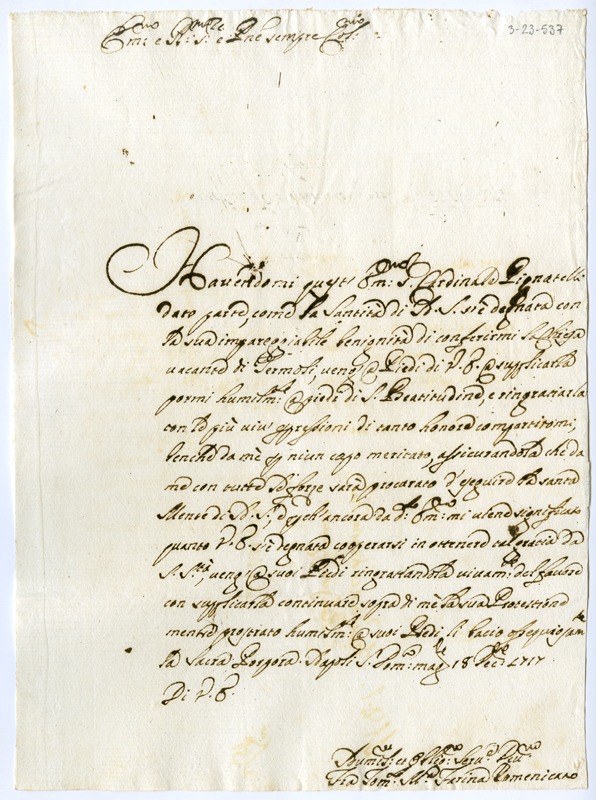 3-23-537
Em:mo e R:mo S:re e P:ne sempre Col:mo
Havendomi quest' Em:mo S. Cardinale Pignatelli
dato parte, come la Santità di N. S. si è degnata con
la sua impareggiabile benignità di conferirmi la Chiesa
vacante di Termoli, vengo a Piedi di V. E. a supplicarla
pormi humilm:te a piedi di S. Beatitudine, e ringraziarla
con le più vive espressioni di tanto honore compartitomi,
benche da mè per niun capo meritato, assicurandola che da
me con tutte le forze sarà procurato d'eseguire la santa
Mente di N. S., e perch' ancora da d:o Em:mo mi viene significato
quanto V. E. si è degnata cooperarsi in ottenere tal gracia da
S. S.tà, vengo a suoi Piedi ringratiandola vivam:te del favore
con supplicarla continuare sopra di mè la sua Protettione
mentre prostrato humilm:te a suoi Piedi li bacio ossequiosam:te
la Sacra Porpora. Napoli S. Dom:co mag:re 18 Xbre 1717
Di V. E.
Humil:mo et Oblig:mo Serv:re Div:mo
Fra Tom:o M:a Farina Domenicano